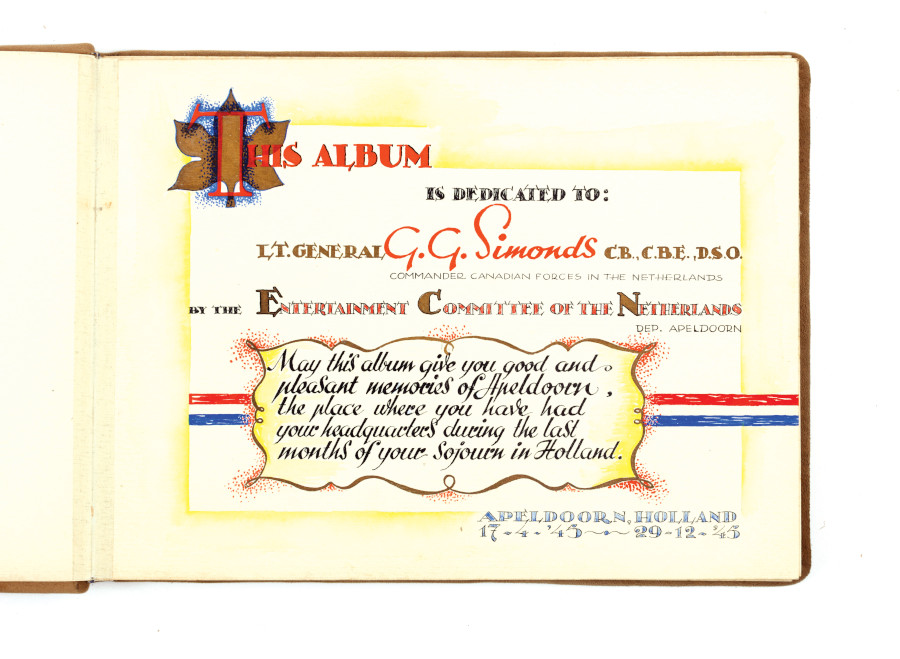 THIS ALBUM
IS DEDICATED TO:
LT. GENERAL G. G. Simonds C.B., C.B.E., D.S.O.
COMMANDER CANADIAN FORCES IN THE NETHERLANDS
BY THE ENTERTAINMENT COMMITTEE OF THE NETHERLANDS
DEP. APELDOORN
May this album give you good and
pleasant memories of Apeldoorn,
the place where you have had
your headquarters during the last
months of your sojourn in Holland.
APELDOORN, HOLLAND
17-4-'45 ~ 29-12-'45